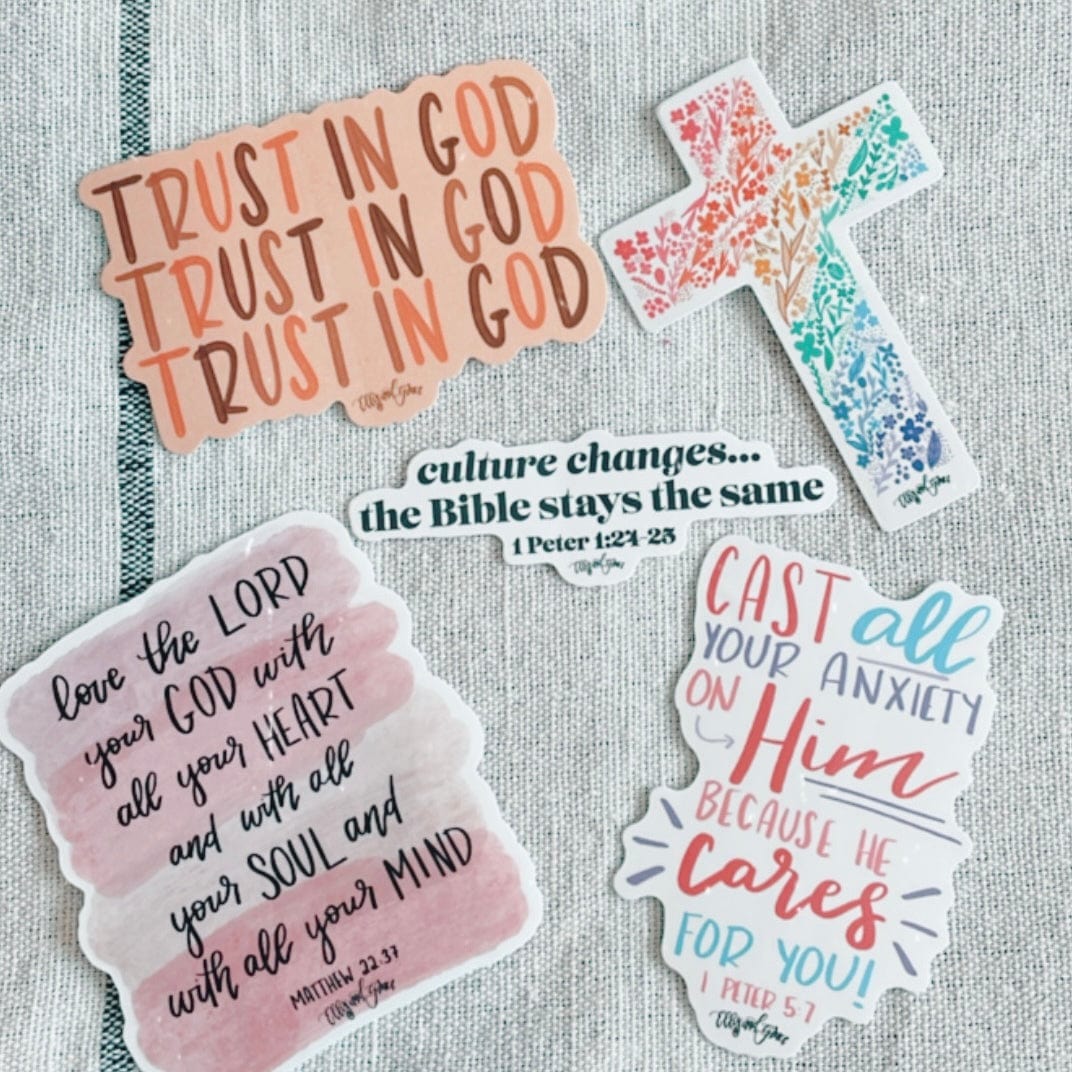 TRUST IN GOD
TRUST IN GOD
TRUST IN GOD
culture changes...
the Bible stays the same
1 Peter 1:24-25
love the LORD
your GOD with
all your HEART
and with all
your SOUL and
with all your MIND
MATTHEW 22:37
CAST all
YOUR ANXIETY
ON Him
BECAUSE HE
Cares
FOR YOU!
1 PETER 5:7